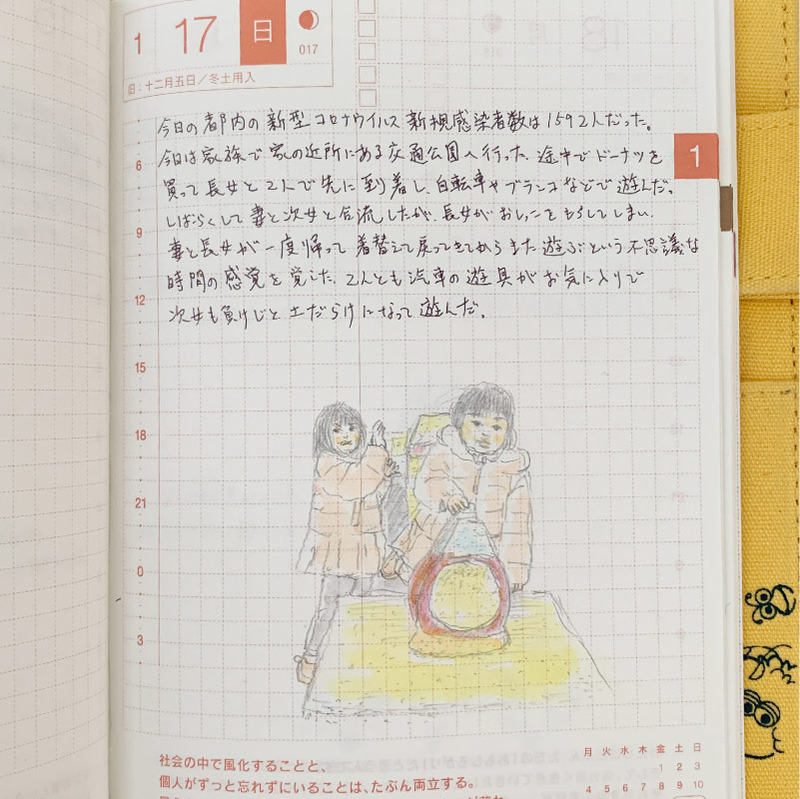 1 17 日
017
旧:十二月五日/冬土用入
今日の都内の新型コロナウイルス新規感染者数は1592人だった。
今日は家族で家の近所にある交通公園へ行った。途中でドーナツを
買って長女と2人で先に到着し、自転車やブランコなどで遊んだ。
しばらくして妻と次女と合流したが、長女がおしっこをもらしてしまい、
妻と長女が一度帰って着替えて戻ってきてからまた遊ぶという不思議な
時間の感覚を覚えた。2人とも汽車の遊具がお気に入りで
次女も負けじと土だらけになって遊んだ。
1
6
9
12
15
18
21
0
3
社会の中で風化することと、
個人がずっと忘れずにいることは、たぶん両立する。
月 火 水 木 金 土 日
1 2 3
4 5 6 7 8 9 10